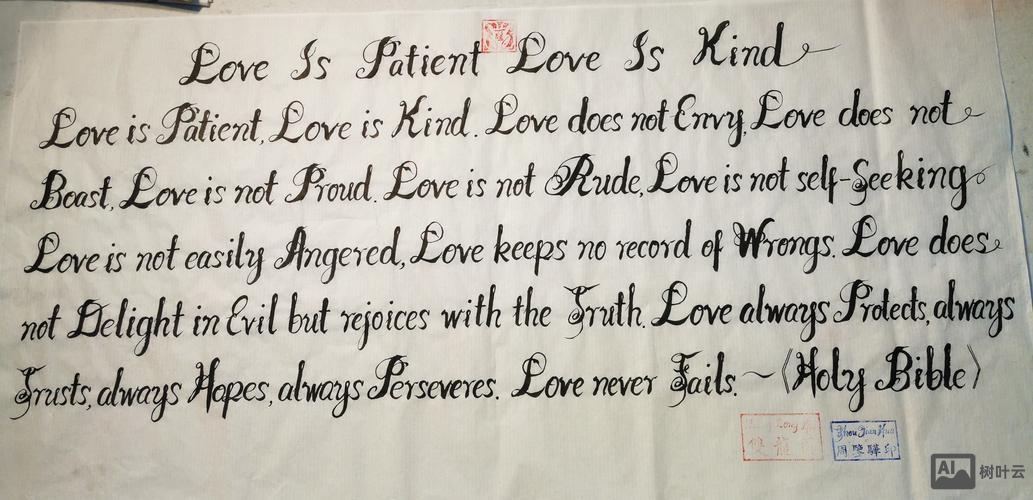 Love Is Patient Love Is Kind
Love is Patient, Love is Kind. Love does not Envy, Love does not
Boast, Love is not Proud. Love is not Rude, Love is not self-Seeking
Love is not easily Angered, Love keeps no record of Wrongs. Love does
not Delight in Evil but rejoices with the Truth. Love always Protects, always
Trusts, always Hopes, always Perseveres. Love never Fails. ~《Holy Bible》
龍
Zhou Jian Hua
周 驊印
AI 树叶云